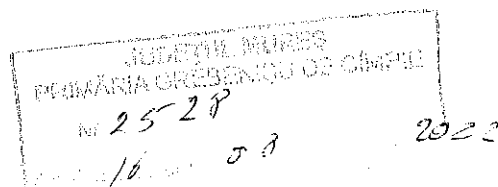 JUDEȚUL MUREȘ
PRIMĂRIA GREBENIȘU DE CÎMPIE
Nr 2528
16 08 2022